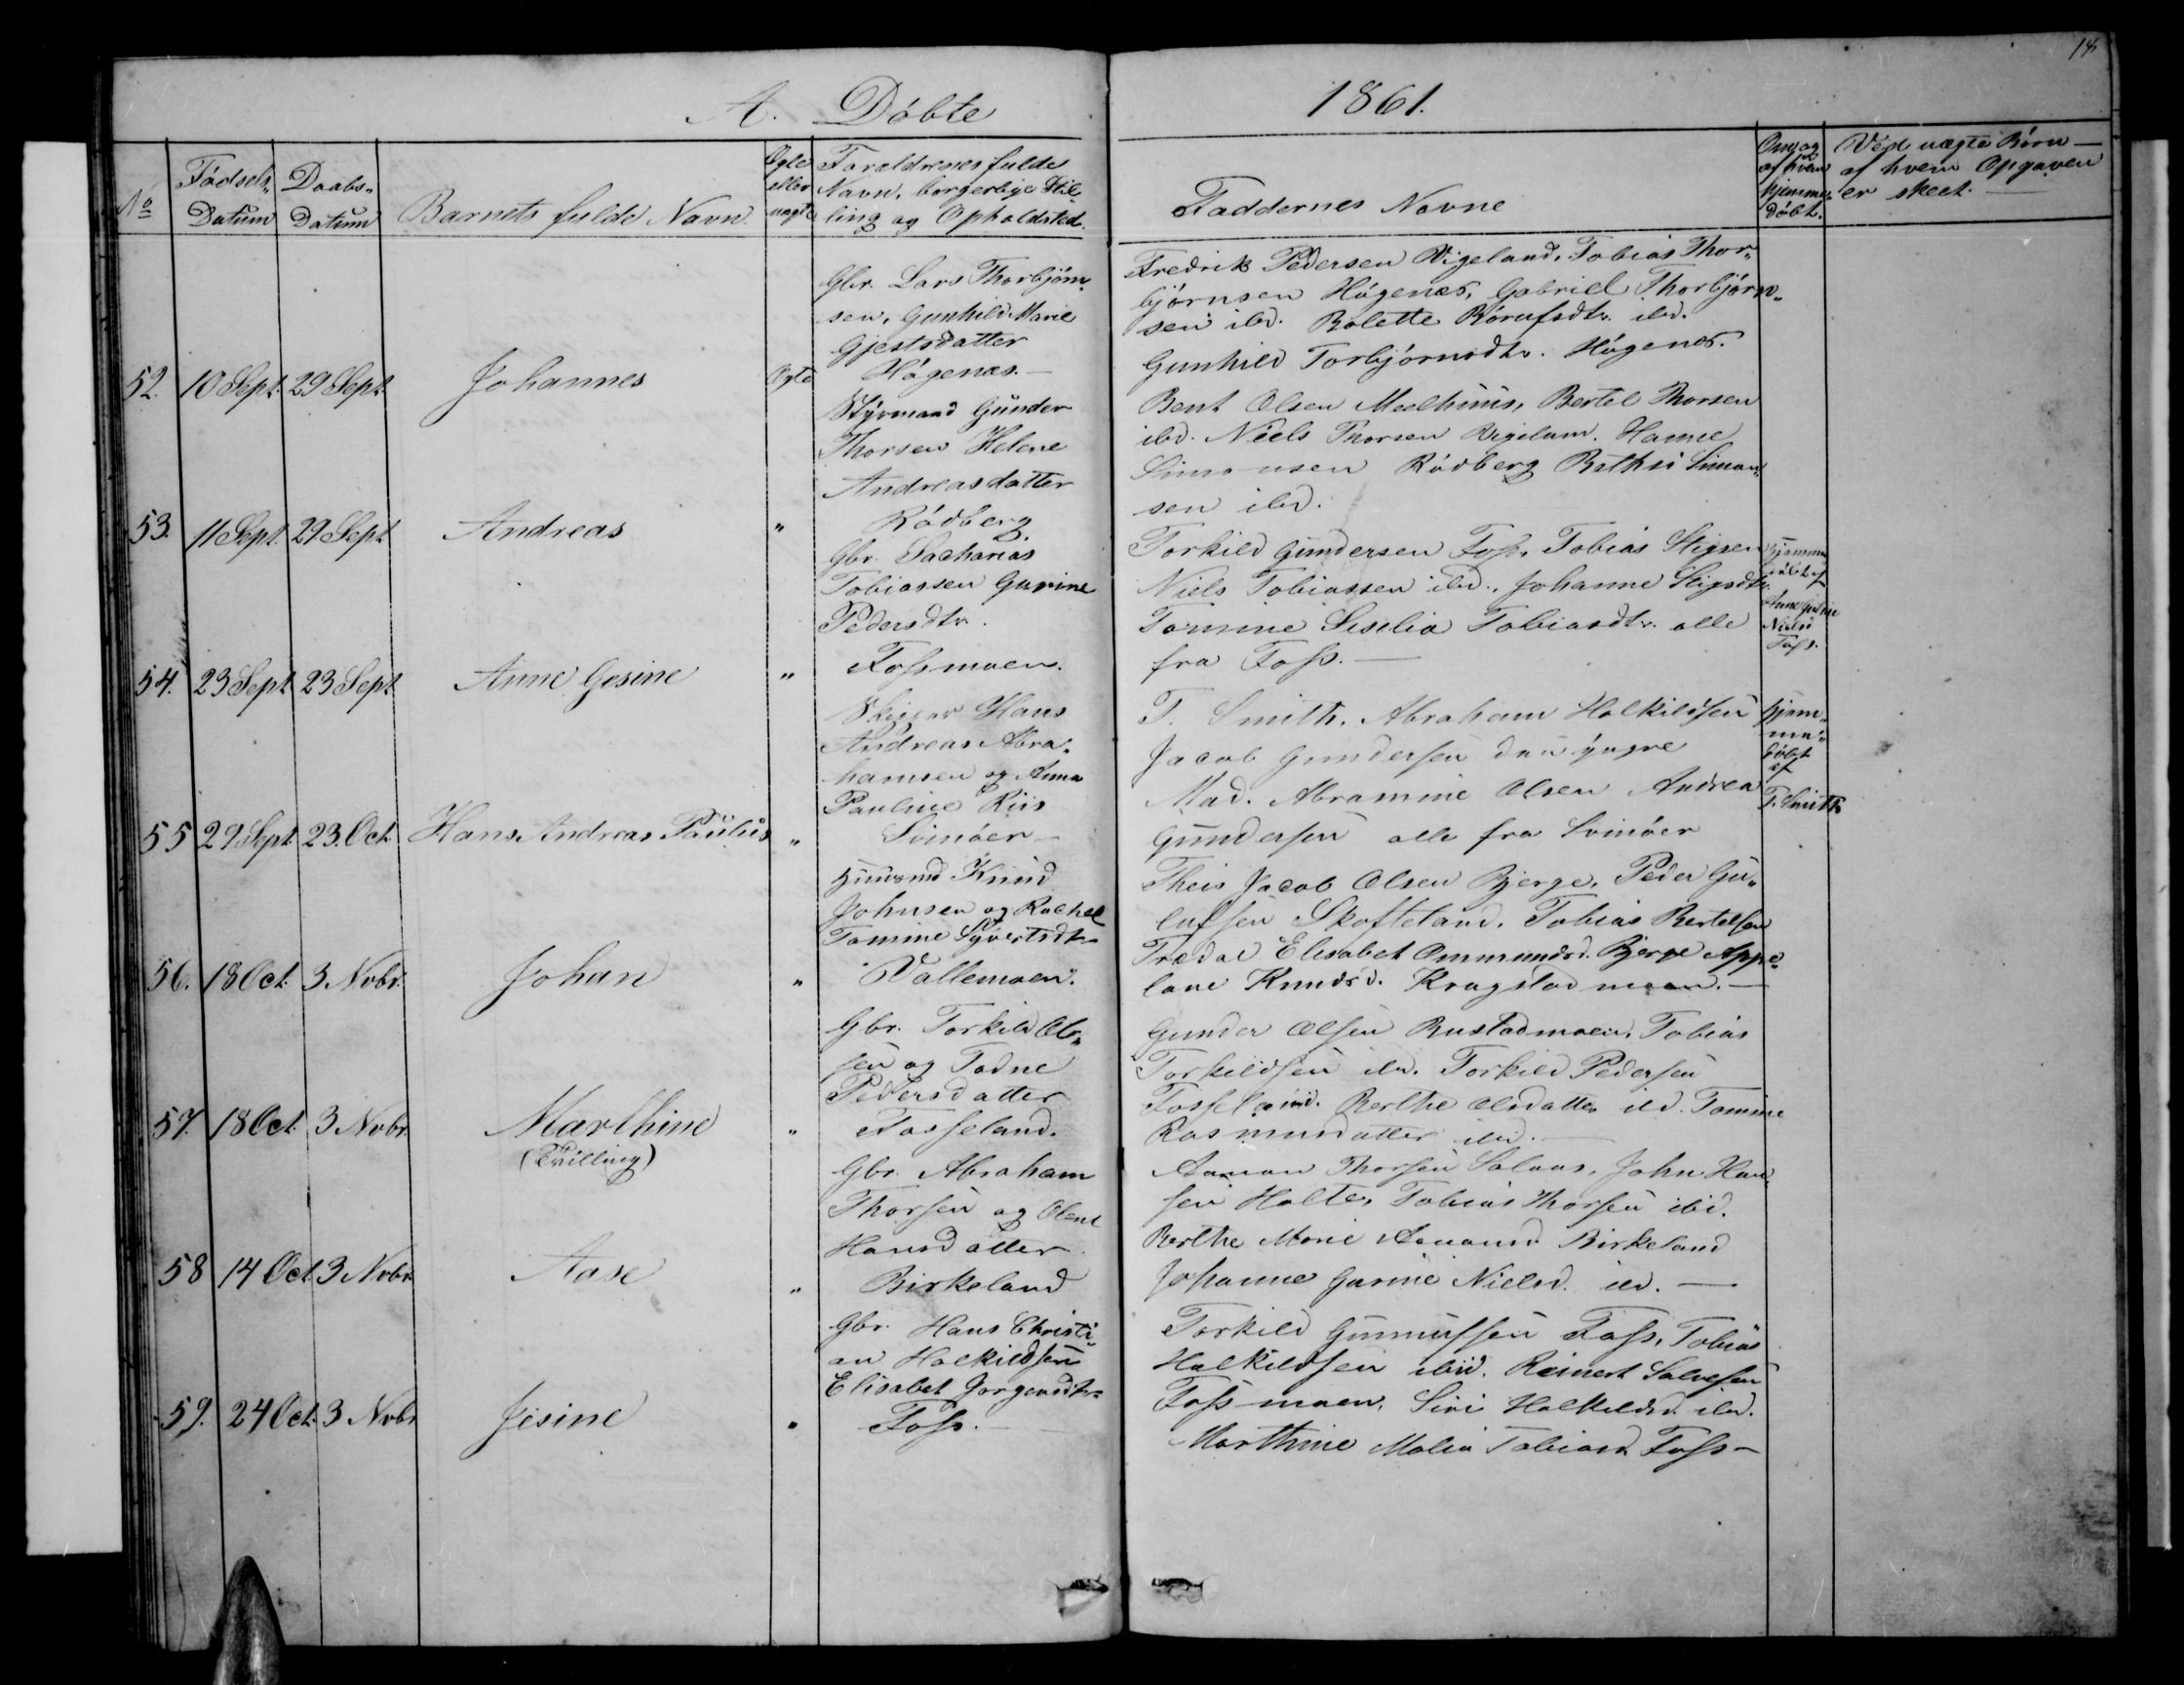 14
A. Döbte
1861.
No
Fødsels-
Datum
Daabs-
Datum
Barnets fulde Navn.
Ægte
eller
uægte
Foreldrenes fulde
Navn, borgerlige Stil-
ling og Opholdsted.
Faddernes Navne
Om og
af hvem
hjemme-
døbt.
Ved uægte Børn —
af hvem Opgaven
er skeet. —
52. 10 Sept. 29 Sept. Johannes Ægte
Gbr. Lars Thorbjörn-
sen, Gunhild Marie
Gjestsdatter
Högenæs. —
Fredrik Pedersen Vigeland, Tobias Thor-
björnsen Högenæs, Gabriel Thorbjörn-
sen ibd. Bolette Rorufsdtr. ibd.
Gunhild Torbjörnsdtr. Högenes.
53. 11 Sept. 29 Sept Andreas "
Styrmand Gunder
Thorsen Helene
Andreasdatter
Rödberg.
Bent Olsen Meelhuus, Bertel Thorsen
ibd. Niels Thorsen Vigeland. Hanne
Simonsen Rödberg Simon-
sen ibd.
54. 23 Sept 23 Sept Anne Gesine "
Gbr. Sacharias
Tobiassen Gurine
Pedersdtr.
Fossmoen.
Torkild Gundersen Foss, Tobias Stigsen
Niels Tobiassen ibd., Johanne Stigsdtr.
Tomine Siselia Tobiasdtr. alle
fra Foss. —
hjemme
døbt af
Anne
Niels
Foss.
55 29 Sept. 23. Oct. Hans Andreas Paulus "
Skipper Hans
Andreas Abra-
hamsen og Anna
Pauline Riis
Svinöer —
T. Smith. Abraham Holkildsen
Jacob Gundersen den yngre
Mad. Abramine Olsen Andrea
Gundersen alle fra Svinöer
hjem-
me-
døbt
af
T. Smith
56. 18 Oct. 3 Nvbr. Johan "
Huusmd Knud
Johnsen og Rachel
Tomine Syvertsdtr
Vallemoen.
Theis Jacob Olsen Bjerge, Peder Gu-
lufsen Skofteland. Tobias Bertelsen
Tredal Elisabet Ommundsd. Bjerge Appo-
lone Knudsd. Kragstad moen. —
57. 18 Oct. 3 Nvbr. Marthine "
(Tvilling)
Gbr. Torkild Ol-
sen og Todne
Pedersdatter
Fosseland.
Gunder Olsen Rustadmoen, Tobias
Torkildsen ibd. Torkild Pedersen
Fosseland. Berthe Olsdatter ibd. Tomine
Rasmusdatter ibd. —
58 14 Oct 3 Nvbr. Aase "
Gbr. Abraham
Thorsen og Olene
Hansdatter
Birkeland
Aanon Thorsen Salaas, John Han-
sen Holte, Tobias Thorsen ibid.
Berthe Marie Aanonsd Birkeland
Johanne Gurine Nielsd. ibd. —
59. 24 Oct. 3 Nvbr Jisine "
Gbr. Hans Christi-
an Holkildsen
Elisabet Jörgensdtr.
Foss. —
Torkild Gunnufsen Foss, Tobias
Holkildsen ibid. Reinert Salvesen
Foss moen, Siri Holkildsd. ibd.
Marthine Malia Tobiasd. Foss —